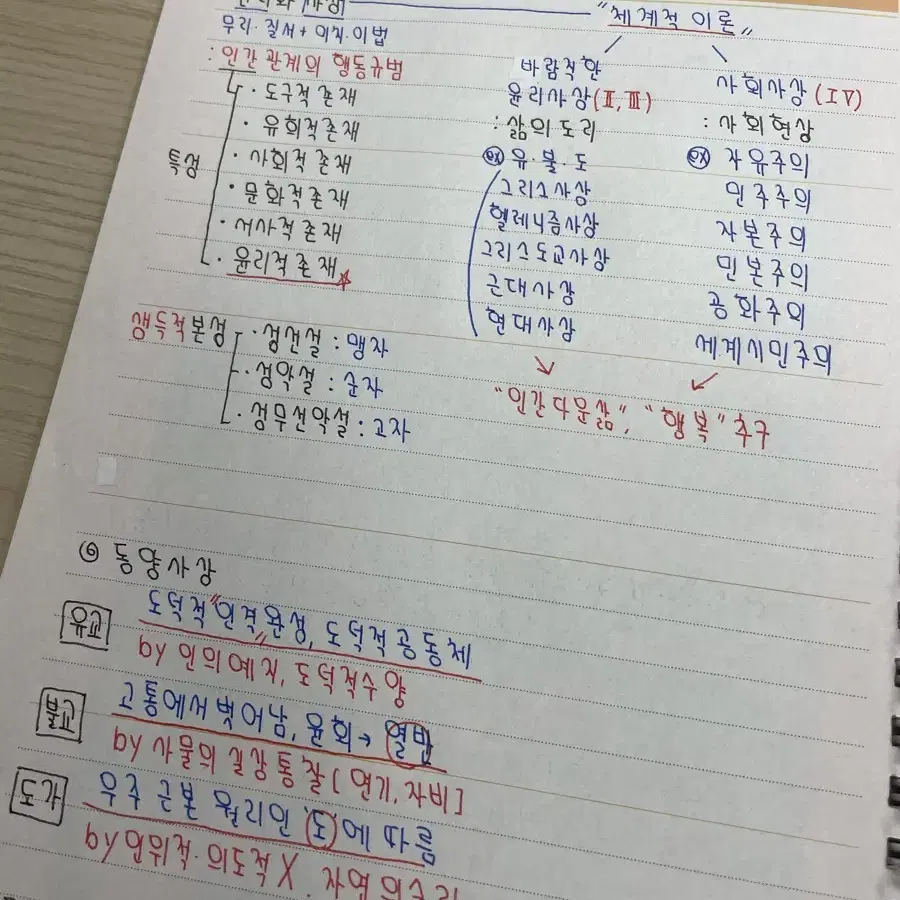 "체계적 이론"
무리·질서+이치·이법
: 인간관계의 행동규범
특성
· 도구적존재
· 유희적존재
· 사회적존재
· 문화적존재
· 서사적존재
· 윤리적존재
생득적본성
· 성선설 : 맹자
· 성악설 : 순자
· 성무선악설 : 고자
바람직한
윤리사상(II, III)
: 삶의 도리
ex) 유·불·도
그리스사상
헬레니즘사상
그리스도교사상
근대사상
현대사상
사회사상(IV)
: 사회현상
ex) 자유주의
민주주의
자본주의
민본주의
공화주의
세계시민주의
"인간다운삶", "행복"추구
동양사상
유교
도덕적"인격완성", 도덕적공동체
by 인의예지, 도덕적수양
불교
고통에서 벗어남, 윤회→열반
by 사물의 실상 통찰 [연기, 자비]
도가
우주 근본 원리인 도에 따름
by 인위적·의도적 X